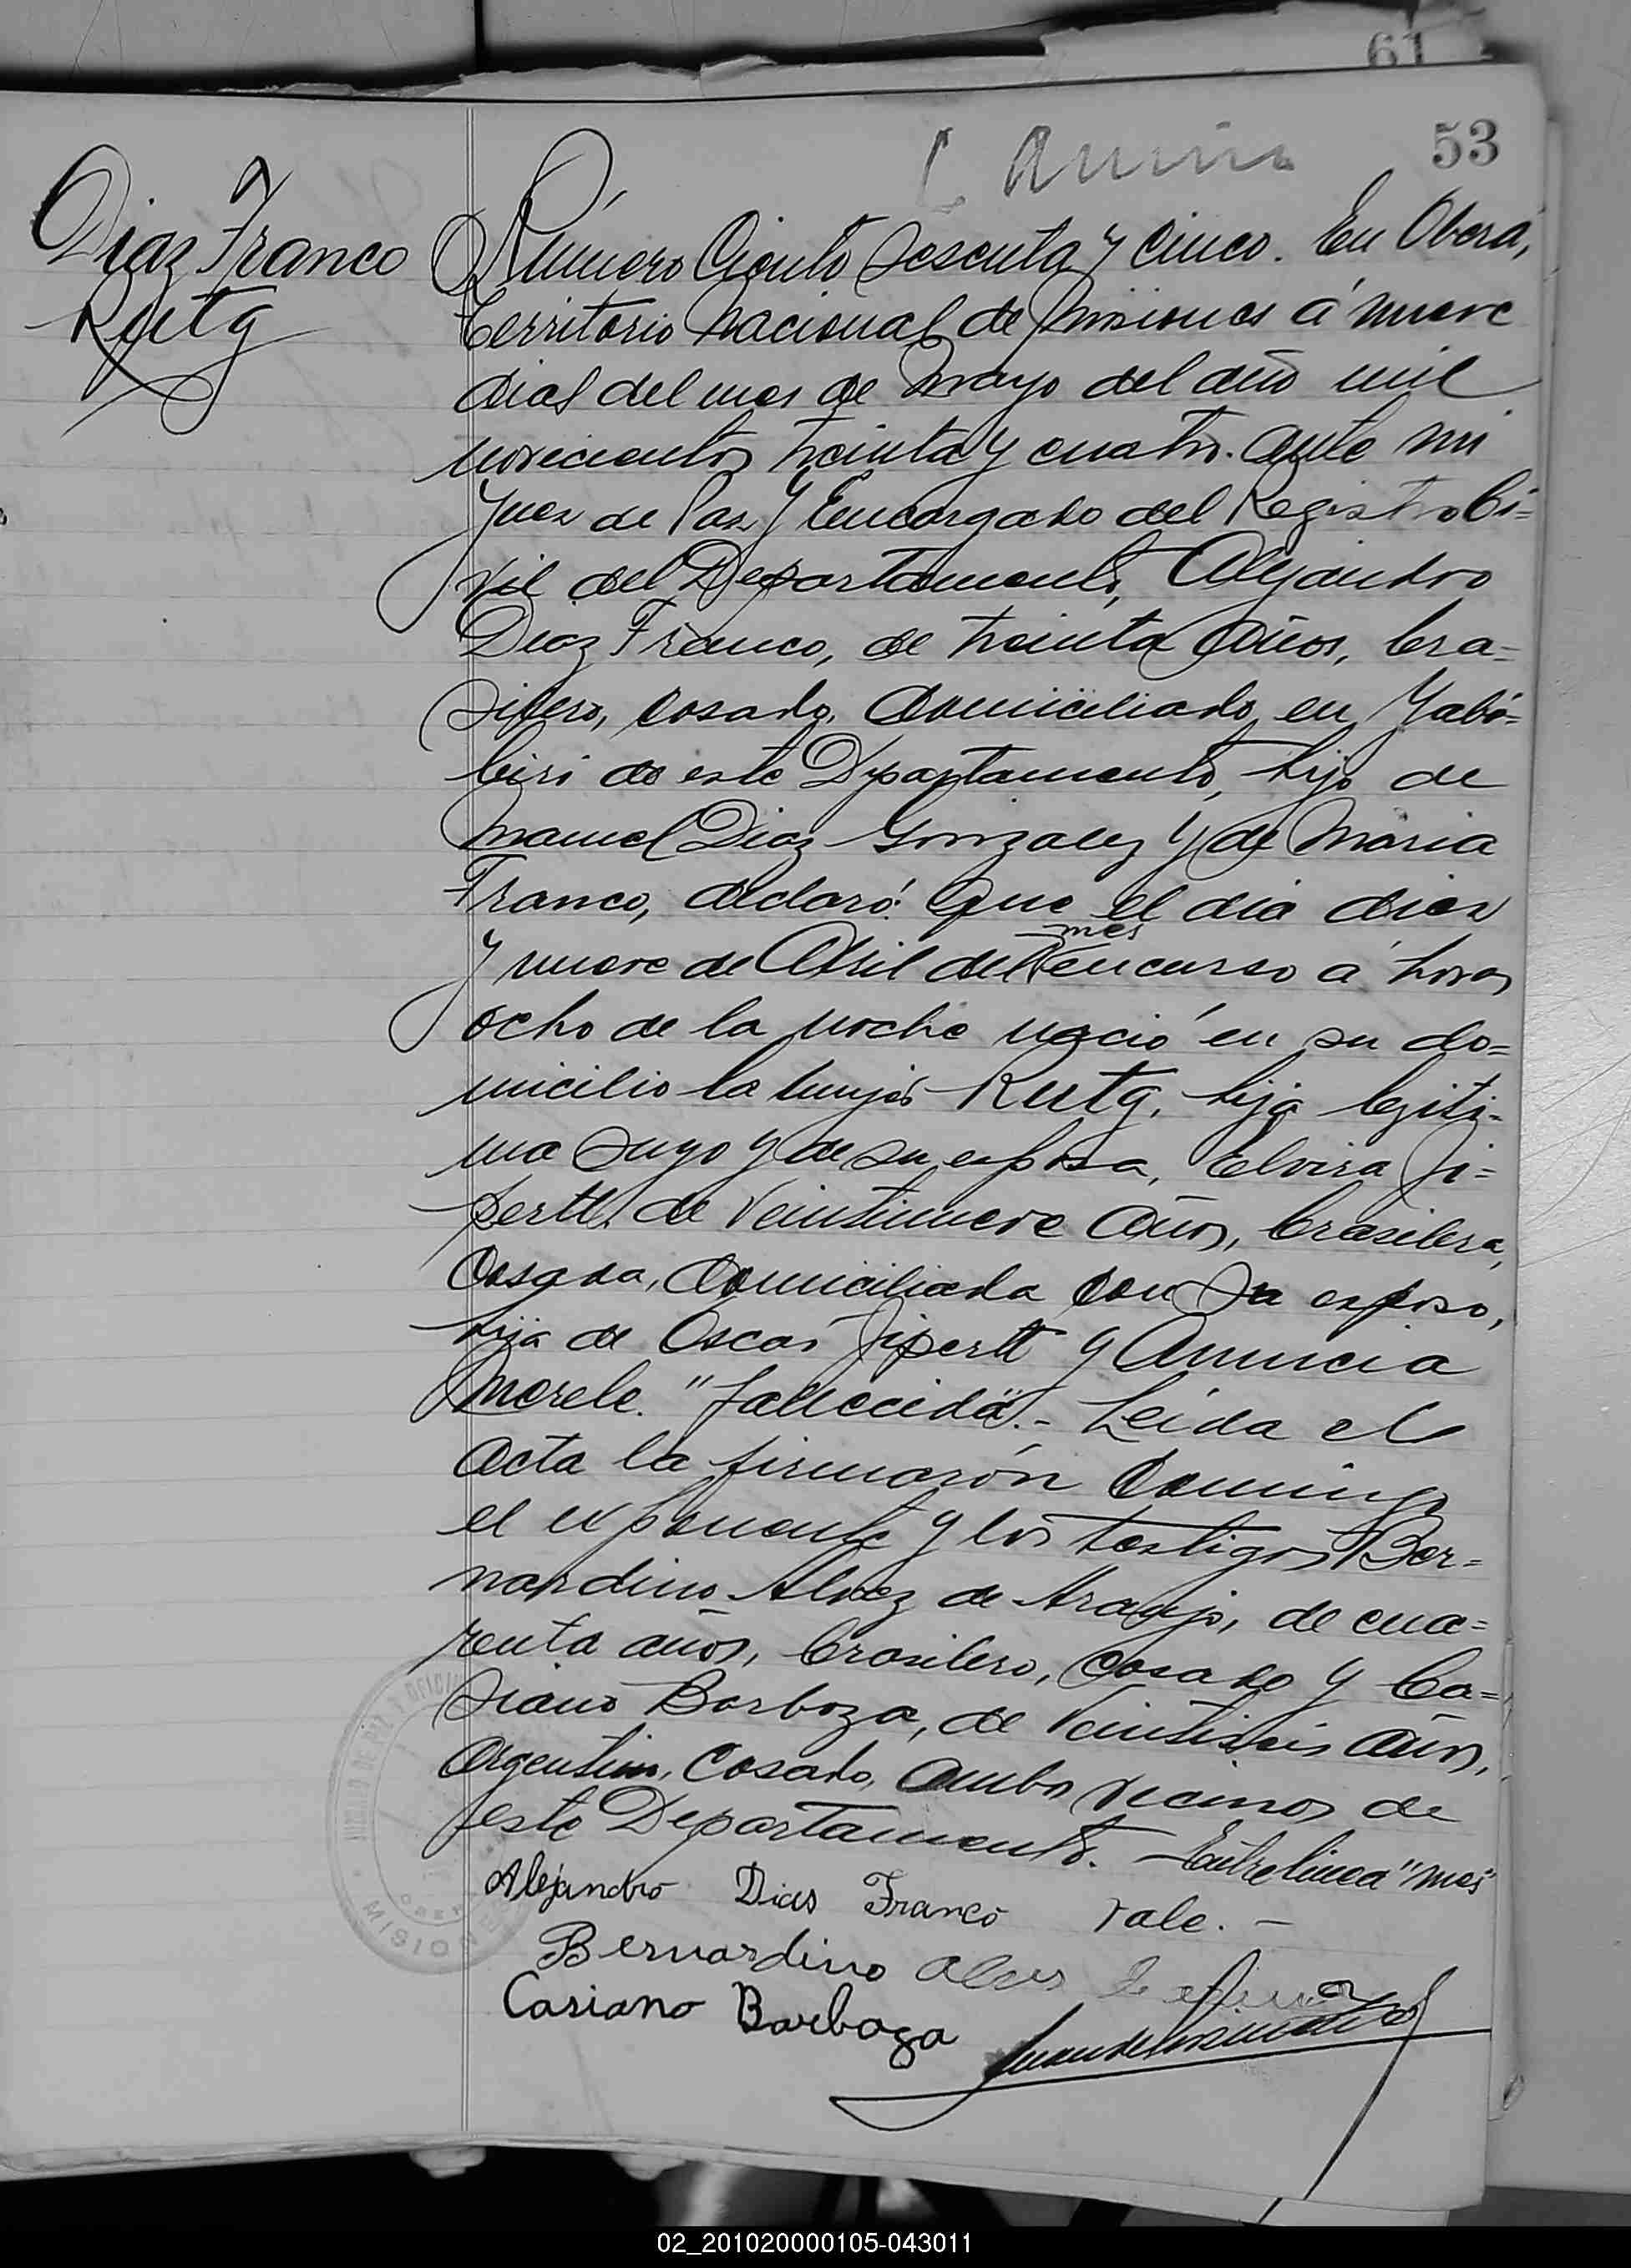 61
53
Diaz Franco
Rutg
Número Ciento Sesenta y cinco. En Oberá,
Territorio Nacional de Misiones á nueve
dias del mes de Mayo del año mil
novecientos treinta y cuatro. ante mi
Juez de Paz y Encargado del Registro Ci=
vil del Departamento, Alejandro
Diaz Franco, de treinta años, bra=
silero, casado, domiciliado en Yabe=
biri de este Departamento, hijo de
Manuel Diaz Gonzalez y de Maria
Franco, declaró: Que el dia diez
mes
y nueve de Abril del en curso á horas
ocho de la noche nació en su do=
micilio la mujer Rutg, hija legiti=
ma suya y de su esposa, Elvira Ji=
pertt, de veintinueve años, brasilera,
casada, domiciliada con su esposo,
hija de Oscar Jipertt y Anuncia
Merele. "fallecida".- Leida el
acta la firmarón conmigo
el exponente y los testigos Ber=
nardino Alvez de Araujo, de cua=
renta años, brasilero, casado y Ca=
siano Barboza, de veintiseis años,
argentino, casado, ambos vecinos de
este Departamento. - Entrelinea "mes"
Alejandro Dias Franco vale. -
Bernardino Alves de
Casiano Barboza
JUZGADO DE PAZ Y OFICIN
MISIONES
02_201020000105-043011